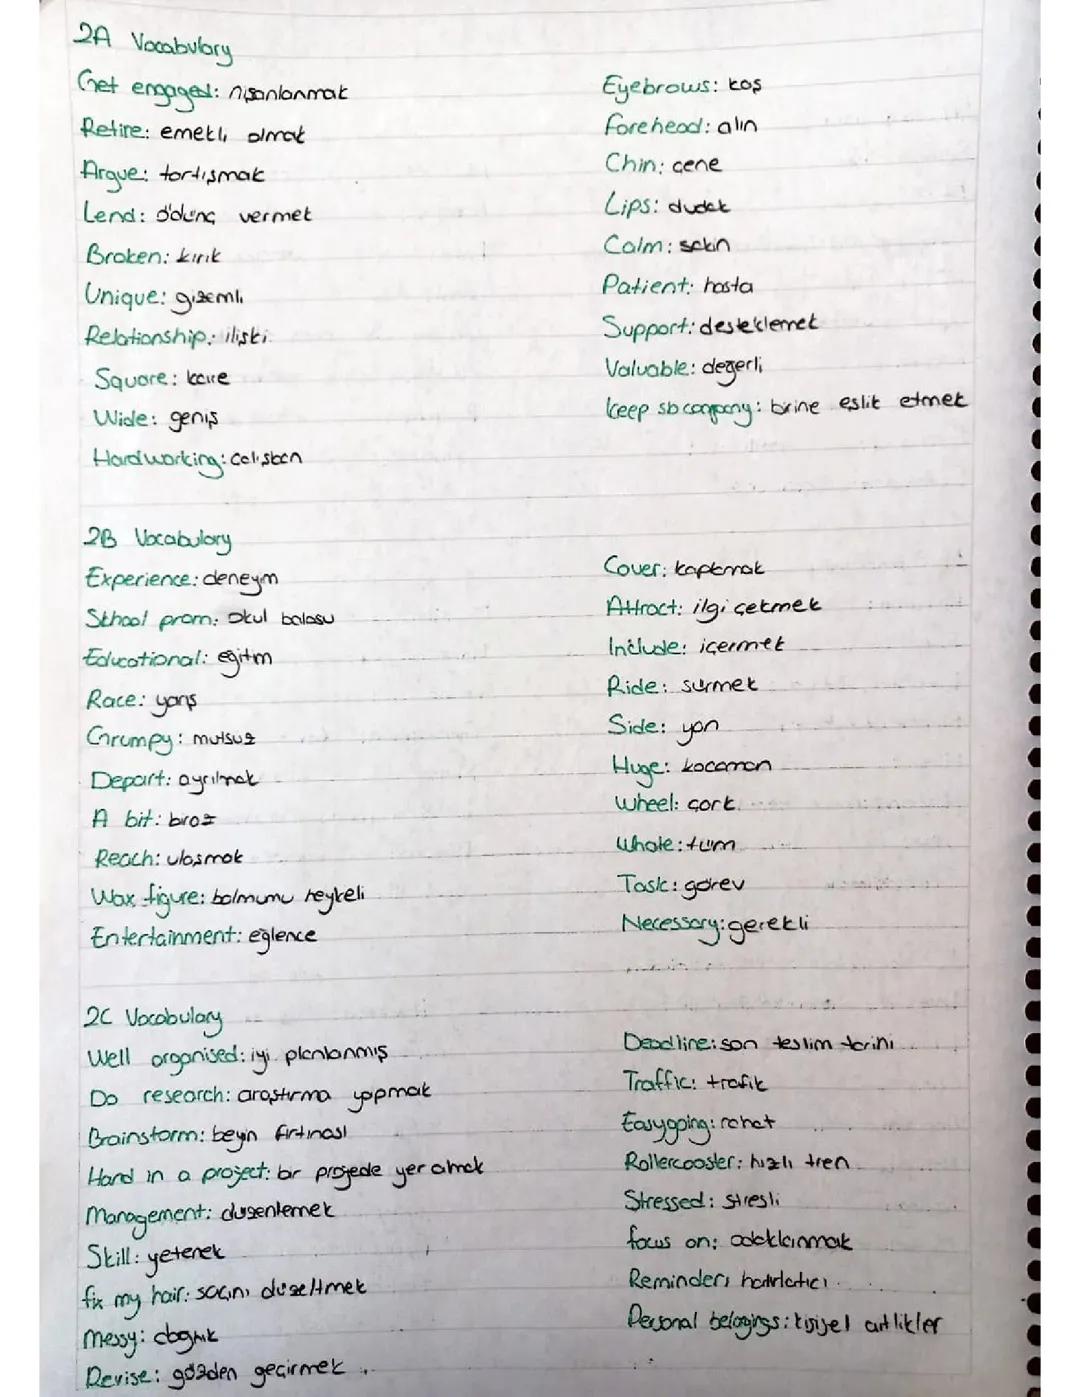 2A Vocabulary
Get engaged: nişanlanmak
Retire: emekli olmak
Argue: tartışmak
Lend: ödünç vermek
Broken: kırık
Unique: gizemli
Relationship: ilişki
Square: kare
Wide: geniş
Hardworking: çalışkan
Eyebrows: kaş
Forehead: alın
Chin: çene
Lips: dudak
Calm: sakin
Patient: hasta
Support: desteklemek
Valuable: değerli
Keep sb company: birine eşlik etmek
2B Vocabulary
Experience: deneyim
School prom: okul balosu
Educational: eğitim
Race: yarış
Grumpy: mutsuz
Depart: ayrılmak
A bit: biraz
Reach: ulaşmak
Wax figure: balmumu heykeli
Entertainment: eğlence
Cover: kaplamak
Attract: ilgi çekmek
Include: içermek
Ride: sürmek
Side: yan
Huge: kocaman
Wheel: çark
Whole: tüm
Task: görev
Necessary: gerekli
2C Vocabulary
Well organised: iyi planlanmış
Do research: araştırma yapmak
Brainstorm: beyin fırtınası
Hand in a project: bir projede yer almak
Management: düzenlemek
Skill: yetenek
fix my hair: saçını düzeltmek
Messy: dağınık
Revise: gözden geçirmek
Deadline: son teslim tarihi
Traffic: trafik
Easygoing: rahat
Rollercoaster: hızlı tren
Stressed: stresli
focus on: odaklanmak
Reminder: hatırlatıcı
Personal belogings: kişiyel artlikler